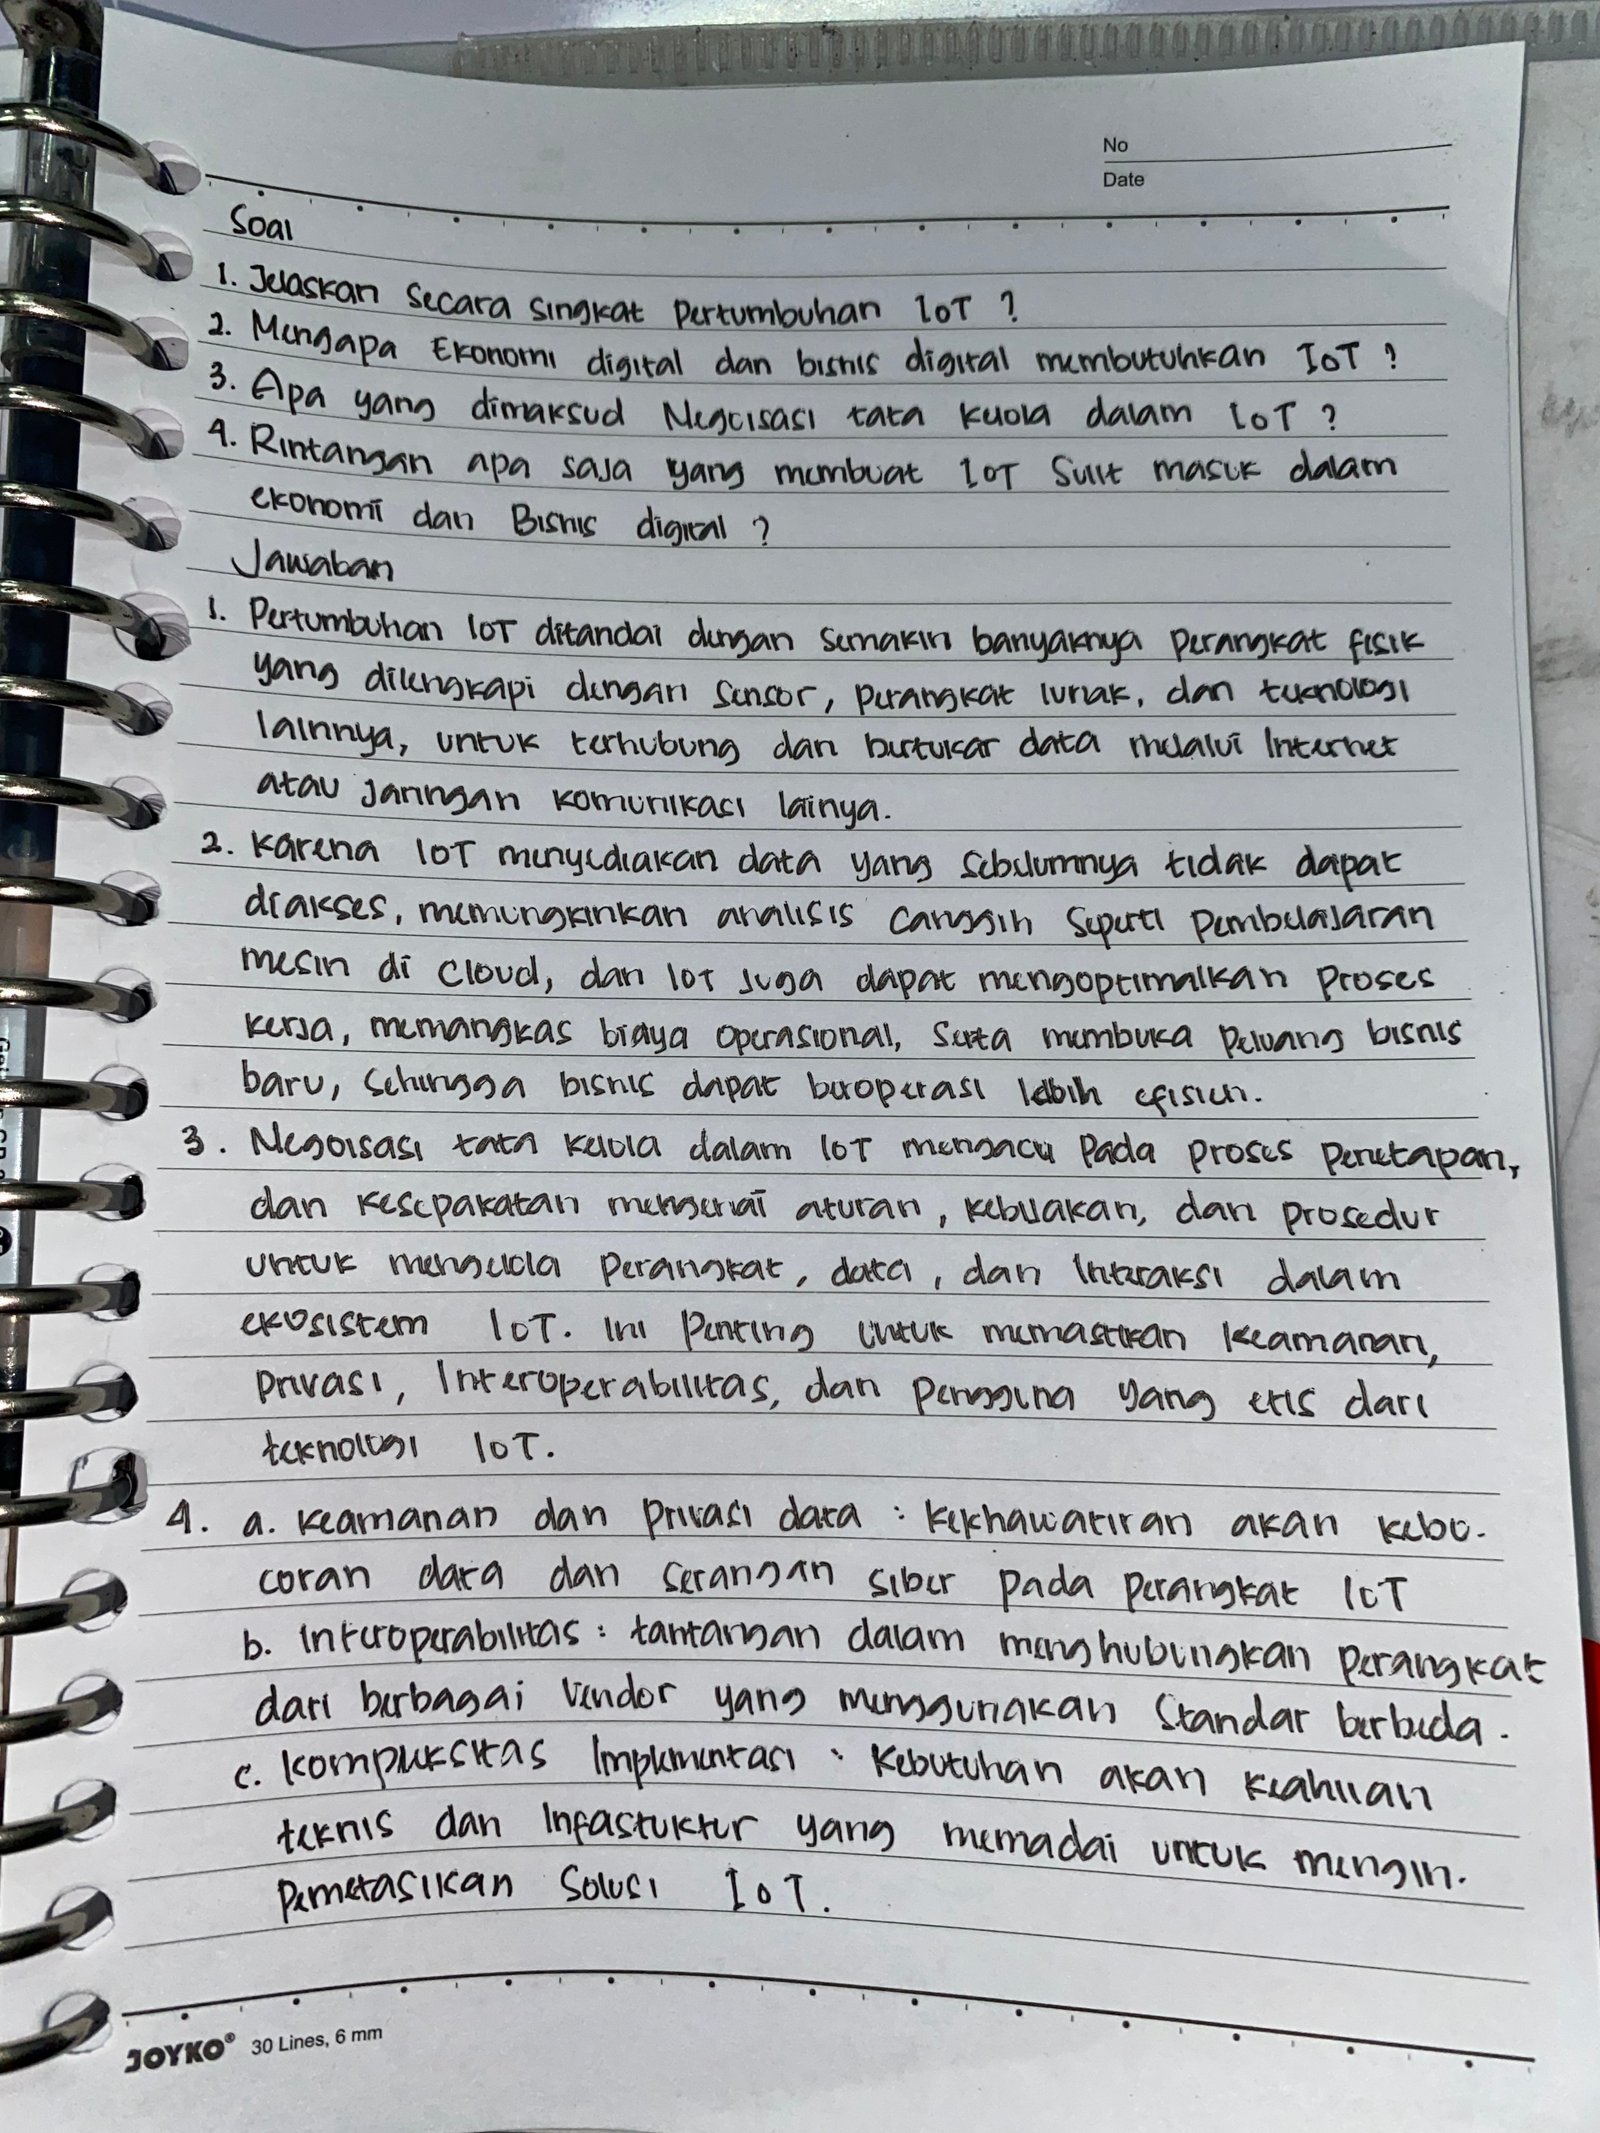 No
Date
Soal
1. Jelaskan secara singkat pertumbuhan IoT ?
2. Mengapa Ekonomi digital dan bisnis digital membutuhkan IoT ?
3. Apa yang dimaksud Negoisasi tata kuola dalam IoT ?
4. Rintangan apa saja yang membuat IoT sulit masuk dalam
ekonomi dan Bisnis digital ?
Jawaban
1. Pertumbuhan IoT ditandai dengan semakin banyaknya perangkat fisik
yang dilengkapi dengan sensor, perangkat lunak, dan teknologi
lainnya, untuk terhubung dan bertukar data melalui Internet
atau jaringan komunikasi lainya.
2. karena IoT menyediakan data yang sebelumnya tidak dapat
diakses, memungkinkan analisis canggih seperti pembelajaran
mesin di cloud, dan IoT juga dapat mengoptimalkan proses
kerja, memangkas biaya operasional, serta membuka peluang bisnis
baru, sehingga bisnis dapat beroperasi lebih efisien.
3. Negoisasi tata kelola dalam IoT mengacu pada proses penetapan,
dan kesepakatan mengenai aturan, kebijakan, dan prosedur
untuk mengelola perangkat, data, dan interaksi dalam
ekosistem IoT. Ini penting untuk memastikan keamanan,
privasi, Interoperabilitas, dan pengguna yang etis dari
teknologi IoT.
4. a. keamanan dan privasi data : kekhawatiran akan kebo-
coran data dan serangan siber pada perangkat IoT
b. Interoperabilitas : tantangan dalam menghubungkan perangkat
dari berbagai vendor yang menggunakan standar berbeda.
c. kompleksitas Implementasi : kebutuhan akan keahlian
teknis dan Infastuktur yang memadai untuk mengin-
pemetasikan solusi IoT.
JOYKO® 30 Lines, 6 mm